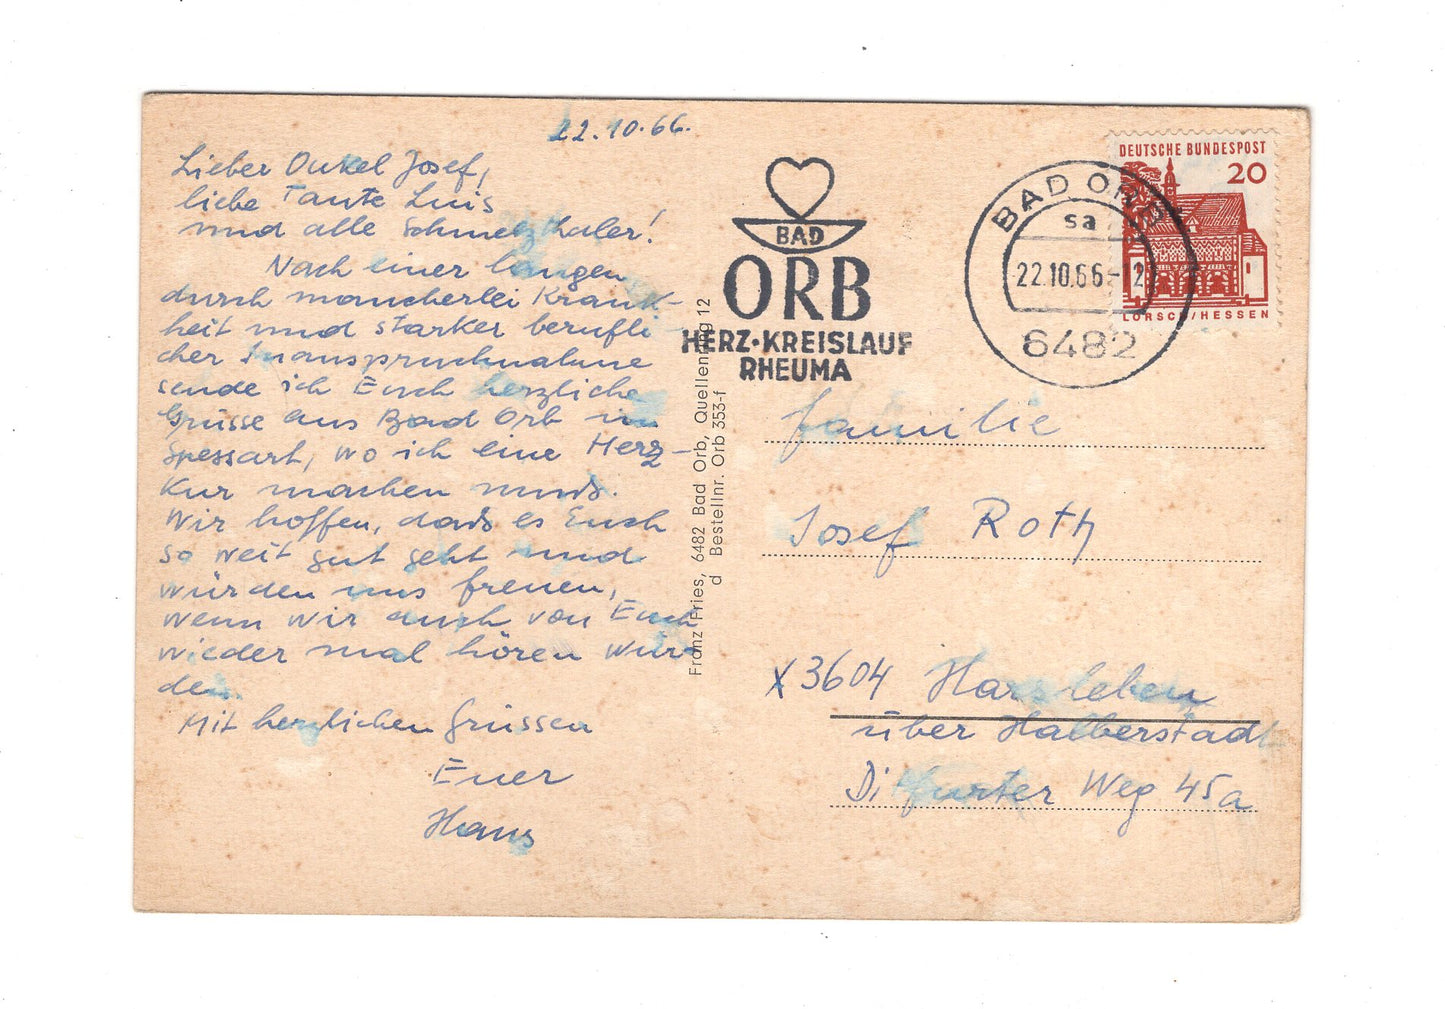 22.10.66.
Lieber Onkel Josef,
liebe Tante Luis
und alle Schmelzthaler!
Nach einer langen
durch mancherlei Krank-
heit und starker berufli-
cher Inanspruchnahme
sende ich Euch herzliche
Grüsse aus Bad Orb im
Spessart, wo ich eine Herz-
Kur machen muß.
Wir hoffen, daß es Euch
so weit gut geht und
würden uns freuen,
wenn wir auch von Euch
wieder mal hören wür-
den.
Mit herzlichen Grüssen
Euer
Hans
BAD
ORB
HERZ·KREISLAUF
RHEUMA
BAD ORB
sa
22.10.66-12
6482
DEUTSCHE BUNDESPOST
20
LORSCH/HESSEN
Franz Fries, 6482 Bad Orb, Quellenring 12
d Bestellnr. Orb 353-f
Familie
Josef Roth
X 3604 Harsleben
über Halberstadt
Ditfurter Weg 45a